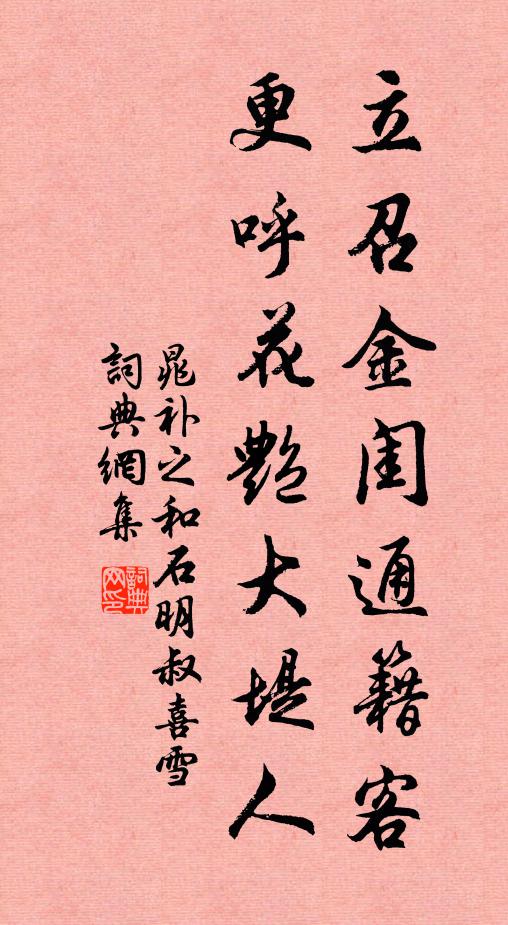 立召金闺通籍客
更呼花艷大堤人
晁补之和石明叔喜雪
詞典網集
詞典網印